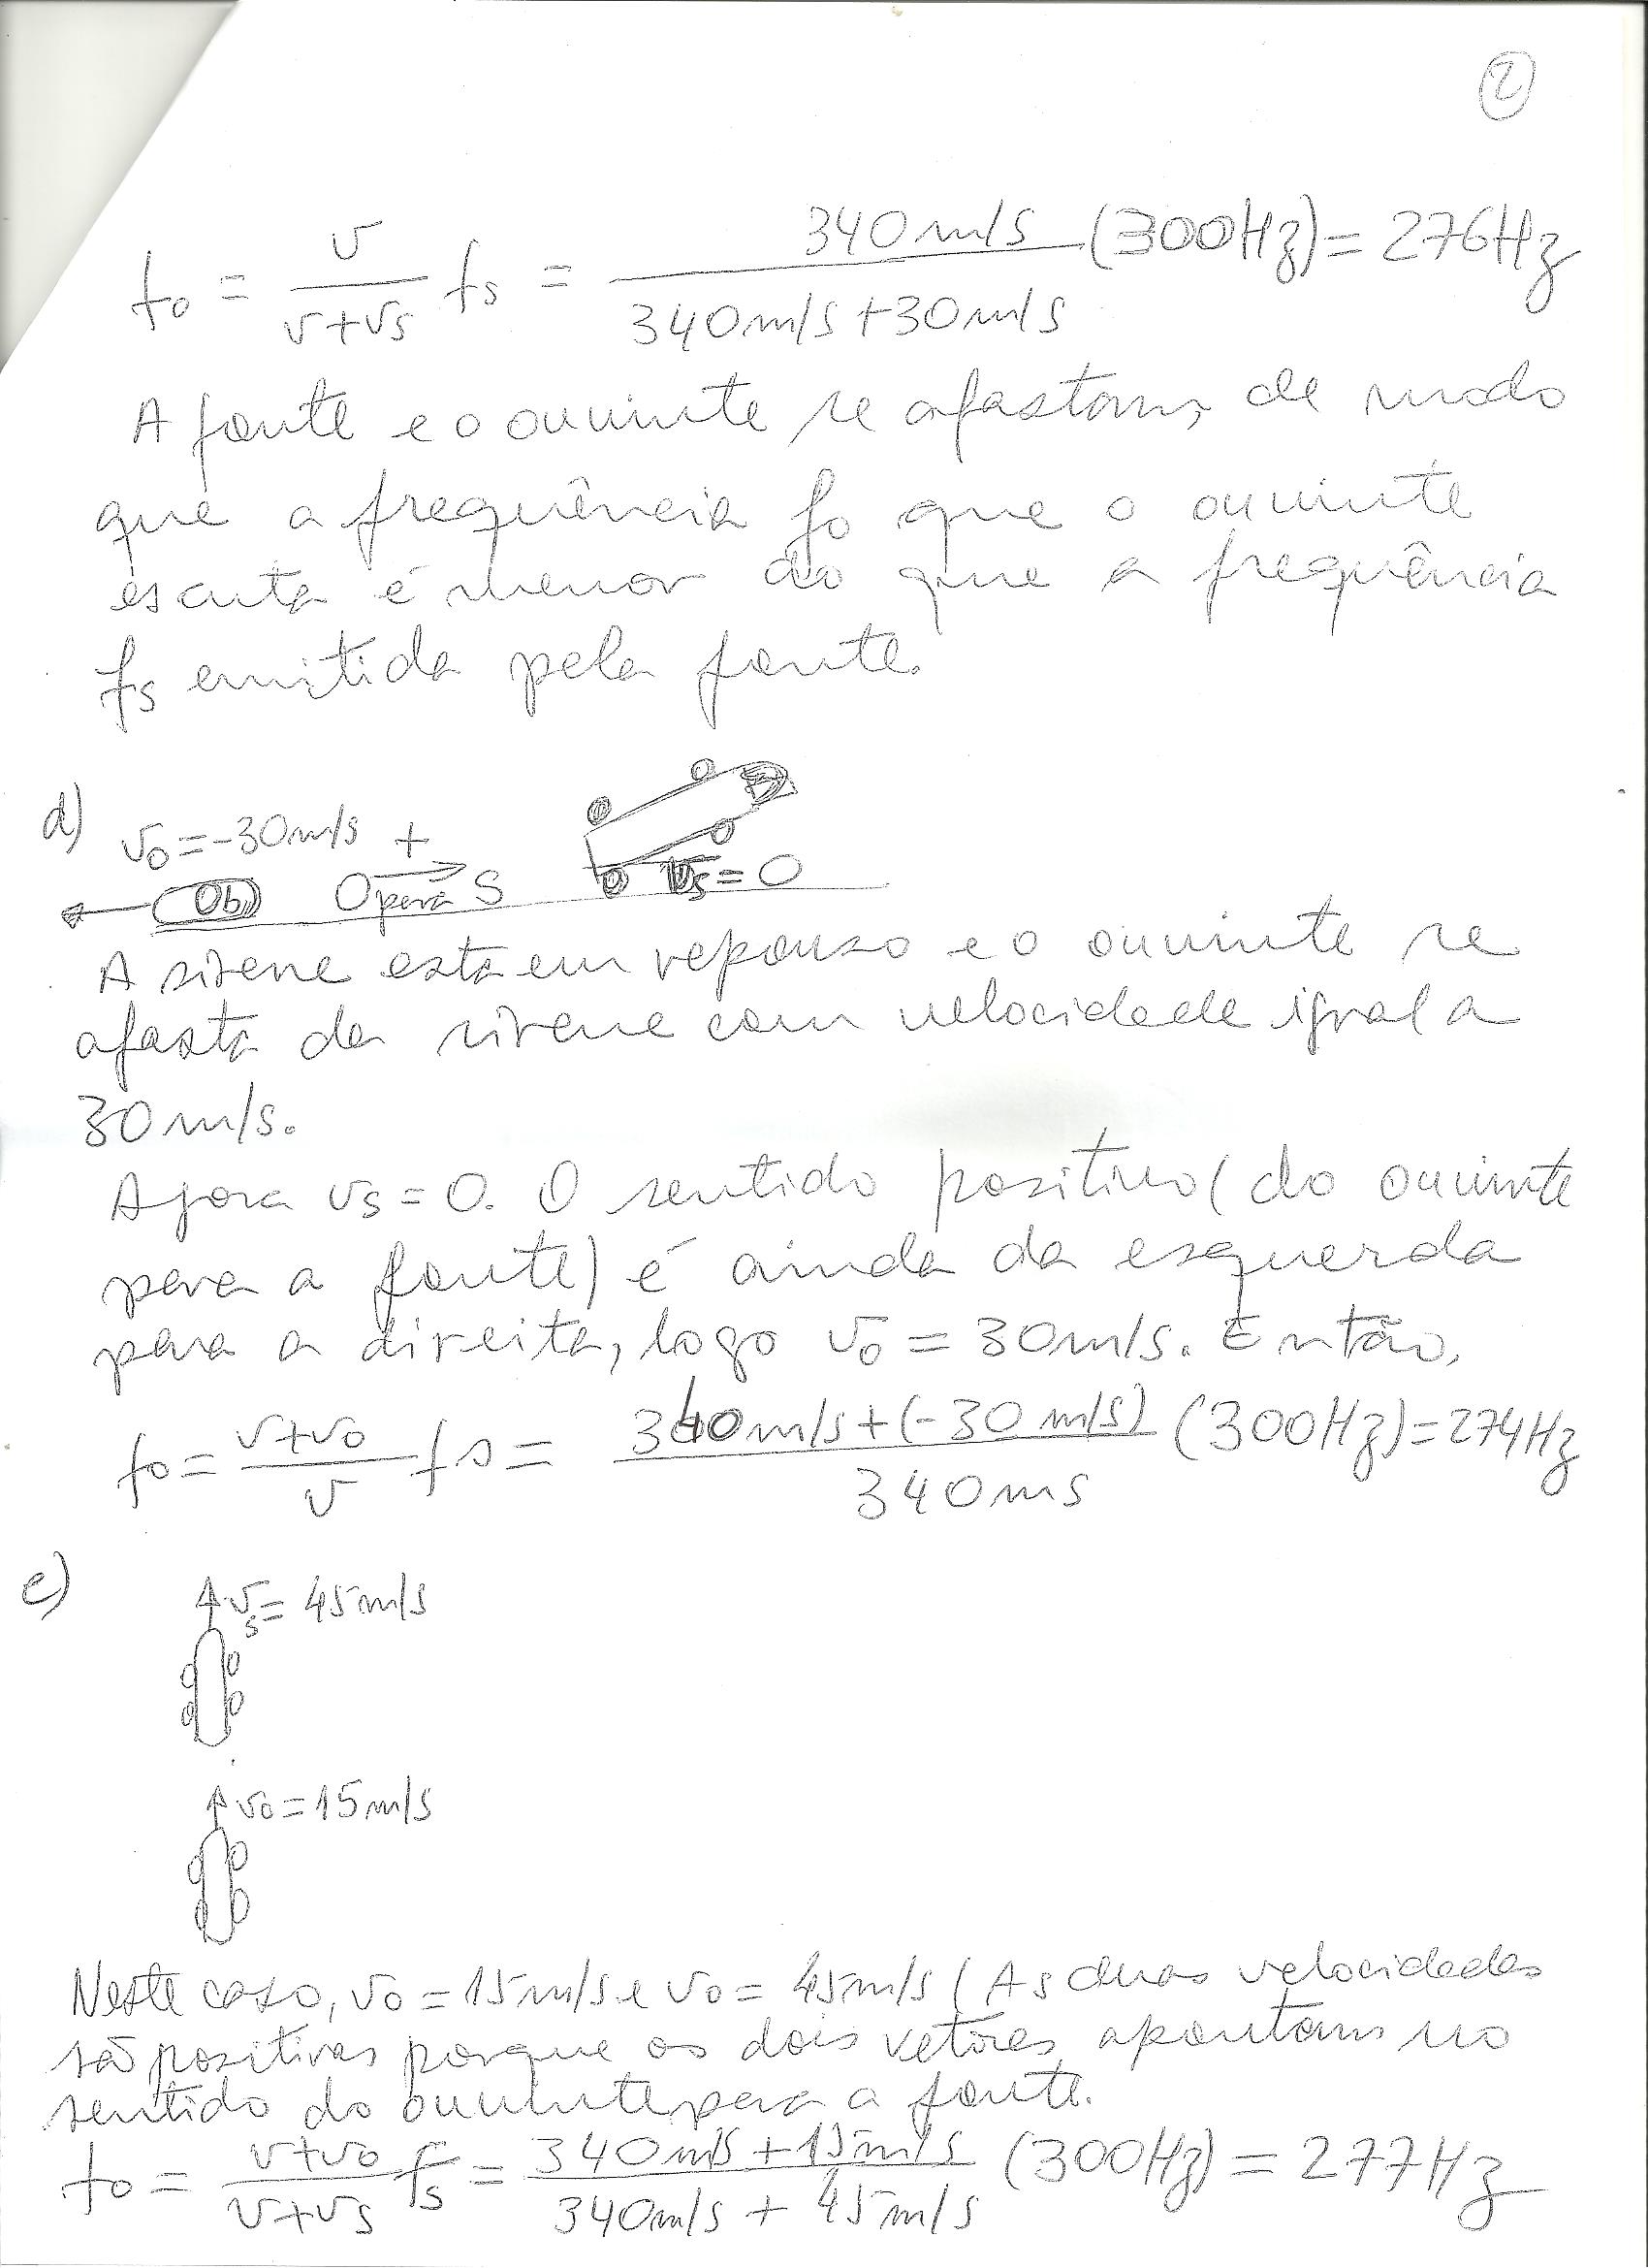 2
fo = v / (v+vs) fs = 340m/s / (340m/s+30m/s) (300Hz) = 276Hz
A fonte e o ouvinte se afastam, de modo
que a frequência fo que o ouvinte
escuta é menor do que a frequência
fs emitida pela fonte.
d) vo=-30m/s +
Ob O para S vs=0
A sirene está em repouso e o ouvinte se
afasta da sirene com velocidade igual a
30m/s.
Agora vs=0. O sentido positivo (do ouvinte
para a fonte) é ainda da esquerda
para a direita, logo vo = 30m/s. Então,
fo = (v+vo) / v fs = 340m/s+(-30m/s) / 340ms (300Hz)=274Hz
e) vs= 45m/s
vo=15m/s
Neste caso, vo=15m/s e vo= 45m/s (As duas velocidades
são positivas porque os dois vetores apontam no
sentido do ouvinte para a fonte.
fo = (v+vo) / (v+vs) fs = 340m/s+15m/s / 340m/s + 45m/s (300Hz) = 277Hz